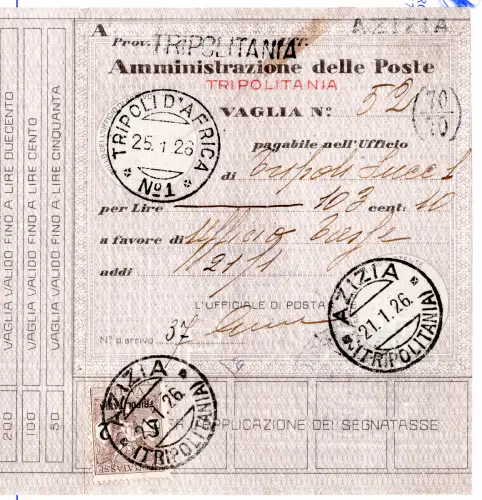 A
Prov. TRIPOLITANIA Uff. AZIZIA
Amministrazione delle Poste
TRIPOLITANIA
VAGLIA Nº 52 (70/10)
pagabile nell'Ufficio
di Tripoli Succ 1
per Lire 103 cent: 10
a favore di Ufficio Tasse
addì 21/1
L'UFFICIALE DI POSTA
Nº d'arrivo 37
TRIPOLI D'AFRICA
25.1.26
* Nº1 *
AZIZIA
21.1.26.
* (TRIPOLITANIA)
AZIZIA
21.1.26
* (TRIPOLITANIA)
APPLICAZIONE DEI SEGNATASSE
VAGLIA VALIDO FINO A LIRE DUECENTO
VAGLIA VALIDO FINO A LIRE CENTO
VAGLIA VALIDO FINO A LIRE CINQUANTA
200
100
50